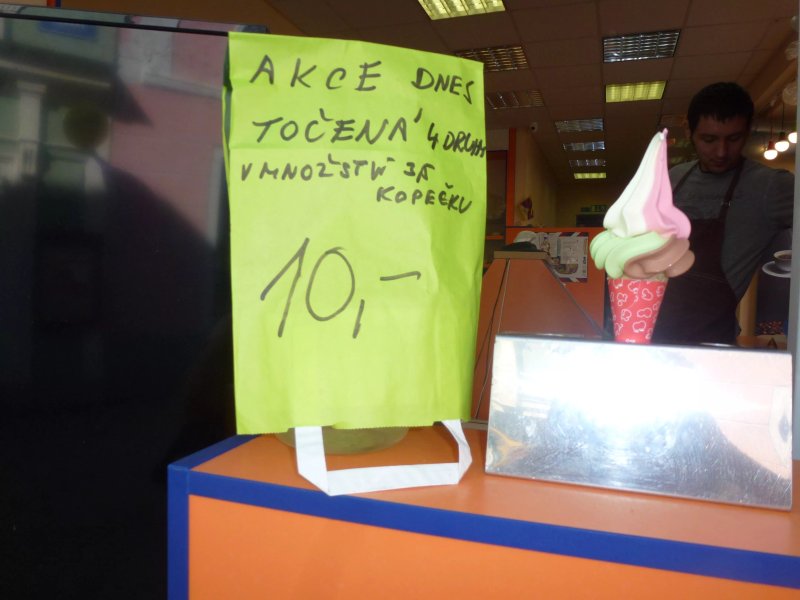 AKCE DNES
TOČENÁ 4 DRUHY
V MNOŽSTVÍ ZA
KOPEČKU
10,-